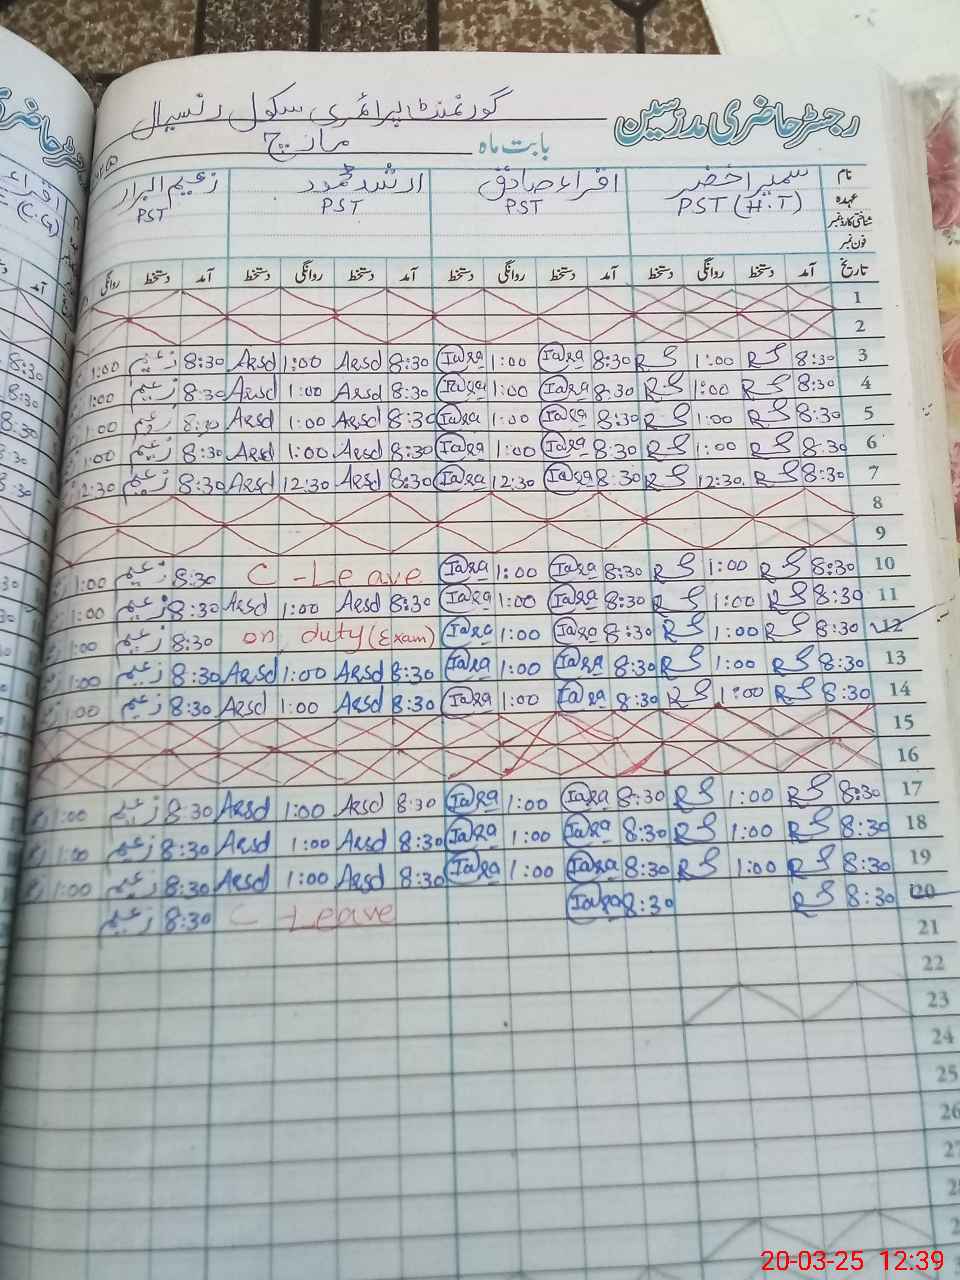 رجسٹر حاضری مدرسین گورنمنٹ پرائمری سکول رنسیال
بابت ماہ مارچ
نام سمیرا خضر اقراء صادق ارشد محمود زعیم البرار
عہدہ PST (H.T) PST PST PST
شناختی کارڈ نمبر
فون نمبر
تاریخ آمد دستخط روانگی دستخط آمد دستخط روانگی دستخط آمد دستخط روانگی دستخط آمد دستخط روانگی
1
2
3 8:30 RS 1:00 RS 8:30 Iqra 1:00 Iqra 8:30 Arsd 1:00 Arsd 8:30 زعیم 1:00
4 8:30 RS 1:00 RS 8:30 Iqra 1:00 Iqra 8:30 Arsd 1:00 Arsd 8:30 زعیم 1:00
5 8:30 RS 1:00 RS 8:30 Iqra 1:00 Iqra 8:30 Arsd 1:00 Arsd 8:30 زعیم 1:00
6 8:30 RS 1:00 RS 8:30 Iqra 1:00 Iqra 8:30 Arsd 1:00 Arsd 8:30 زعیم 1:00
7 8:30 RS 12:30 RS 8:30 Iqra 12:30 Iqra 8:30 Arsd 12:30 Arsd 8:30 زعیم 12:30
8
9
10 8:30 RS 1:00 RS 8:30 Iqra 1:00 Iqra C-Leave 8:30 زعیم 1:00
11 8:30 RS 1:00 RS 8:30 Iqra 1:00 Iqra 8:30 Arsd 1:00 Arsd 8:30 زعیم 1:00
12 8:30 RS 1:00 RS 8:30 Iqra 1:00 Iqra on duty (Exam) 8:30 زعیم 1:00
13 8:30 RS 1:00 RS 8:30 Iqra 1:00 Iqra 8:30 Arsd 1:00 Arsd 8:30 زعیم 1:00
14 8:30 RS 1:00 RS 8:30 Iqra 1:00 Iqra 8:30 Arsd 1:00 Arsd 8:30 زعیم 1:00
15
16
17 8:30 RS 1:00 RS 8:30 Iqra 1:00 Iqra 8:30 Arsd 1:00 Arsd 8:30 زعیم 1:00
18 8:30 RS 1:00 RS 8:30 Iqra 1:00 Iqra 8:30 Arsd 1:00 Arsd 8:30 زعیم 1:00
19 8:30 RS 1:00 RS 8:30 Iqra 1:00 Iqra 8:30 Arsd 1:00 Arsd 8:30 زعیم 1:00
20 8:30 RS 8:30 Iqra C-Leave 8:30 زعیم
21
22
23
24
25
26
27
28
20-03-25 12:39